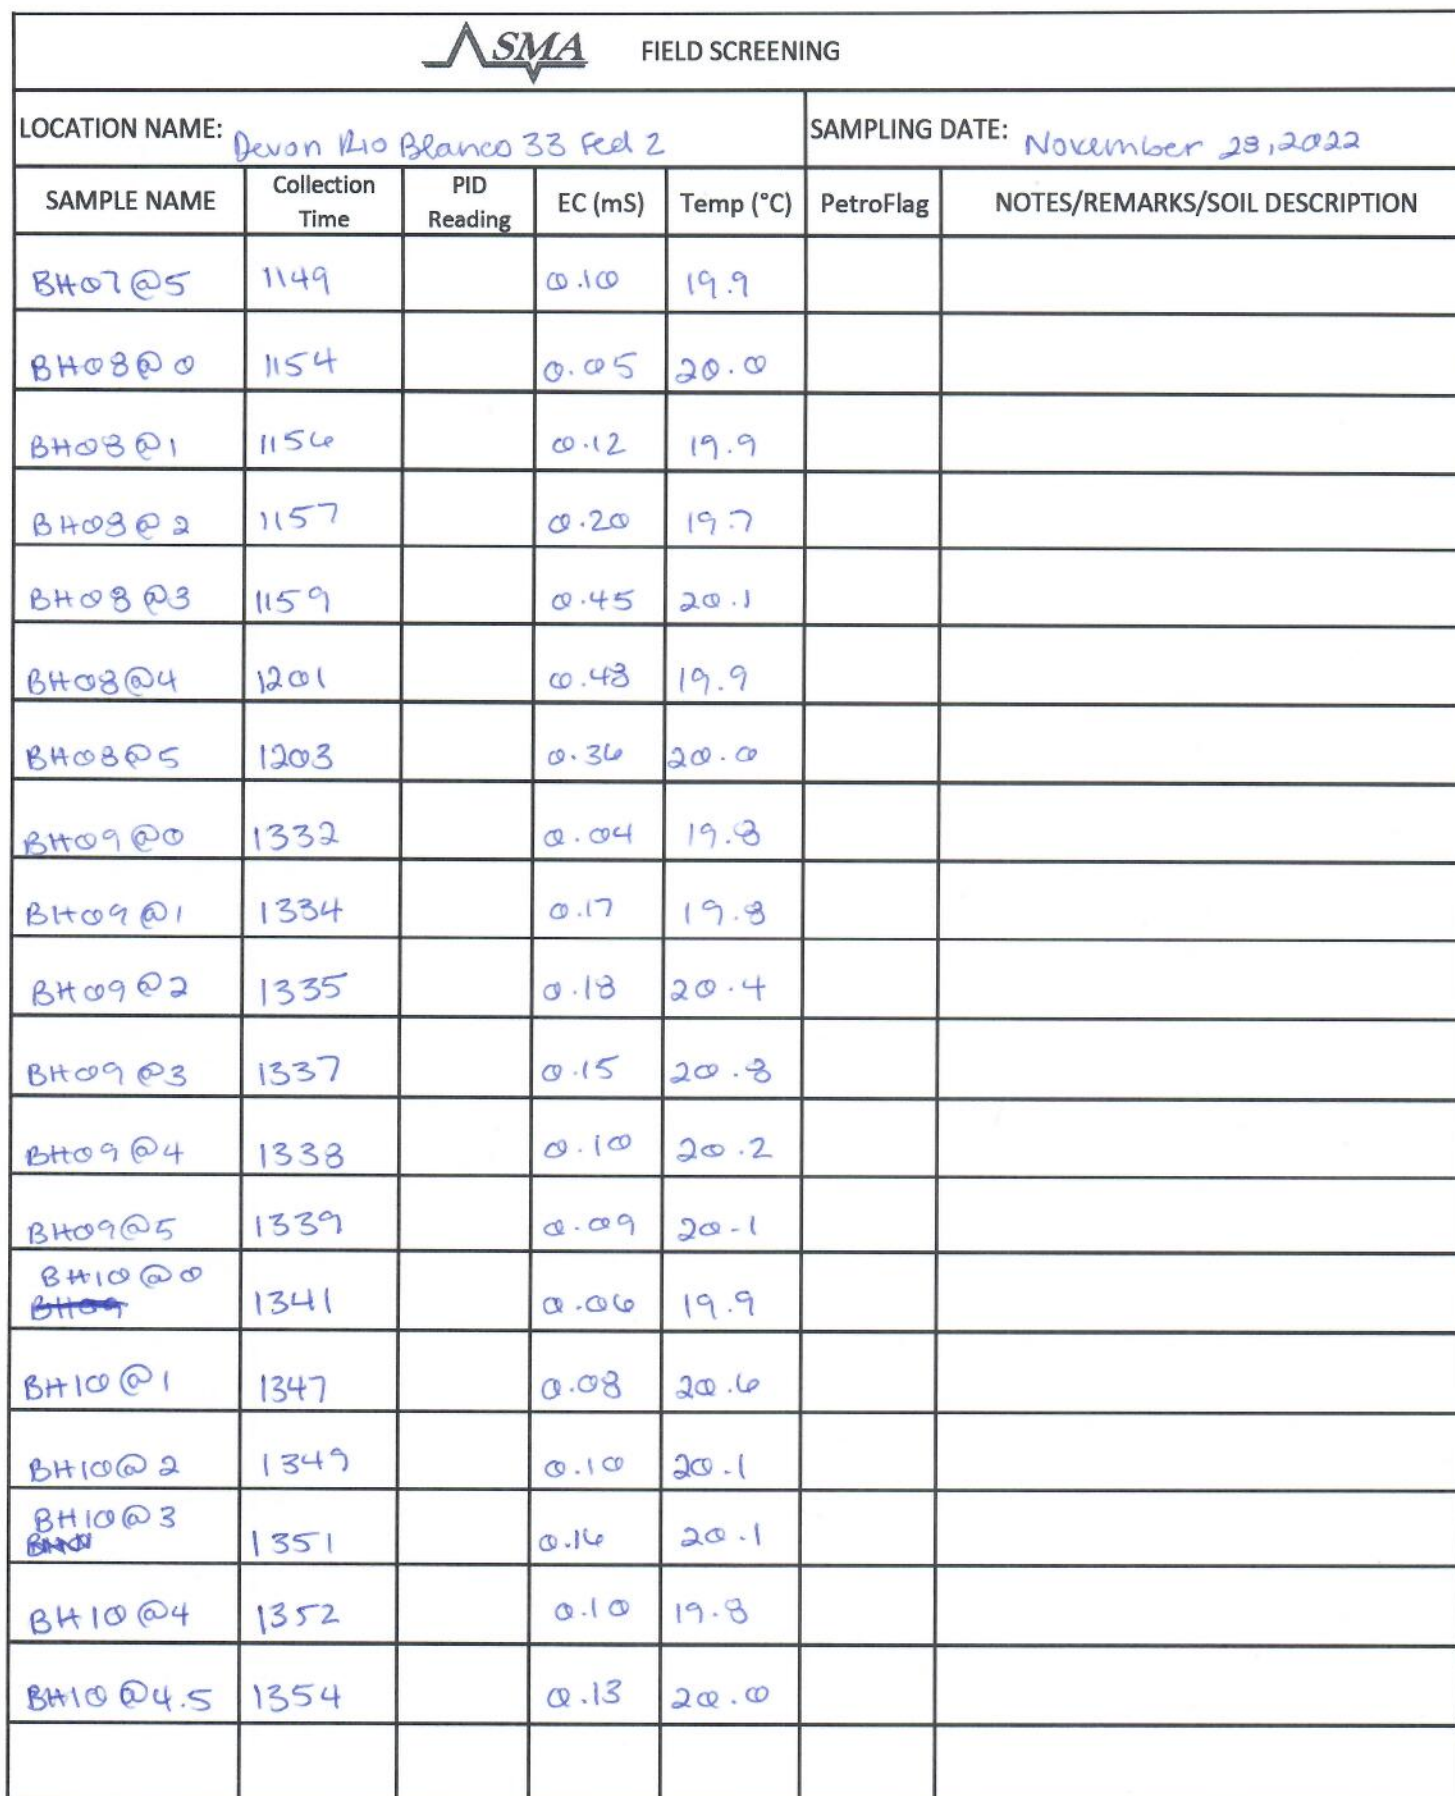 SMA FIELD SCREENING
LOCATION NAME: Devon Rio Blanco 33 Fed 2 SAMPLING DATE: November 28, 2022
SAMPLE NAME Collection Time PID Reading EC (mS) Temp (°C) PetroFlag NOTES/REMARKS/SOIL DESCRIPTION
BH07@5 1149 0.10 19.9
BH08@0 1154 0.05 20.0
BH08@1 1156 0.12 19.9
BH08@2 1157 0.20 19.7
BH08@3 1159 0.45 20.1
BH08@4 1201 0.48 19.9
BH08@5 1203 0.36 20.0
BH09@0 1332 0.04 19.8
BH09@1 1334 0.17 19.8
BH09@2 1335 0.18 20.4
BH09@3 1337 0.15 20.8
BH09@4 1338 0.10 20.2
BH09@5 1339 0.09 20.1
BH10@0 1341 0.06 19.9
BH10@1 1347 0.08 20.6
BH10@2 1349 0.10 20.1
BH10@3 1351 0.16 20.1
BH10@4 1352 0.10 19.8
BH10@4.5 1354 0.13 20.0